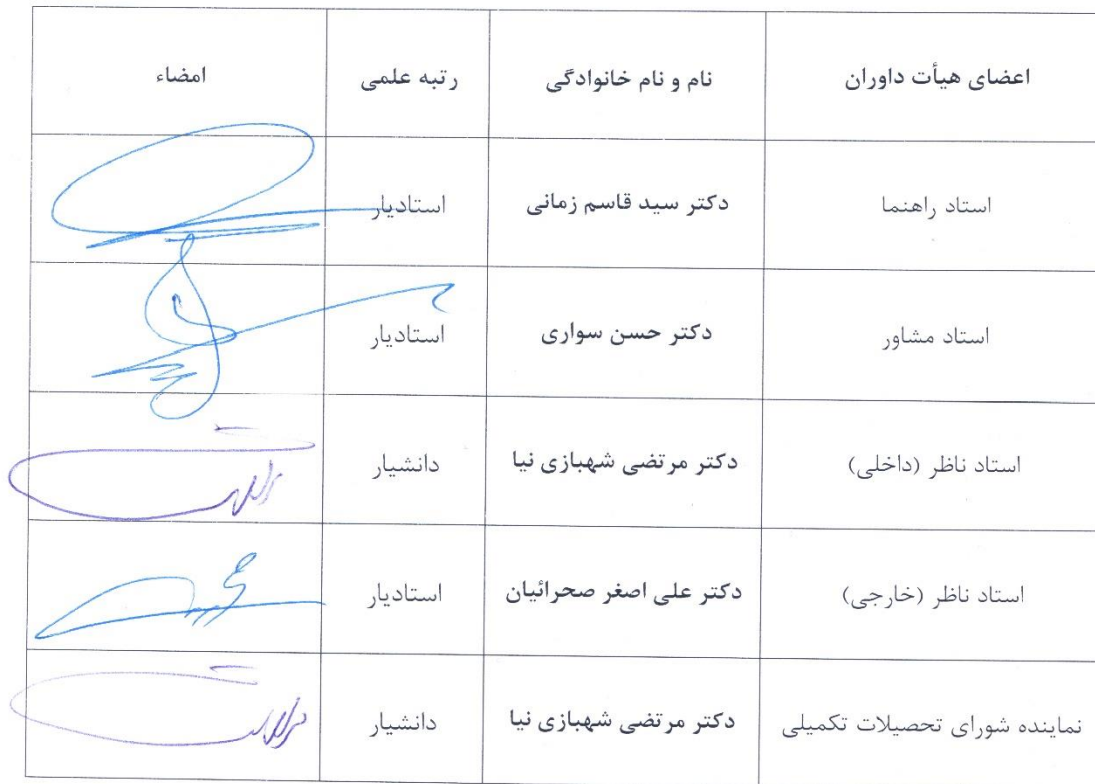 اعضای هیأت داوران نام و نام خانوادگی رتبه علمی امضاء
استاد راهنما دکتر سید قاسم زمانی استادیار
استاد مشاور دکتر حسن سواری استادیار
استاد ناظر (داخلی) دکتر مرتضی شهبازی نیا دانشیار
استاد ناظر (خارجی) دکتر علی اصغر صحرائیان استادیار
نماینده شورای تحصیلات تکمیلی دکتر مرتضی شهبازی نیا دانشیار